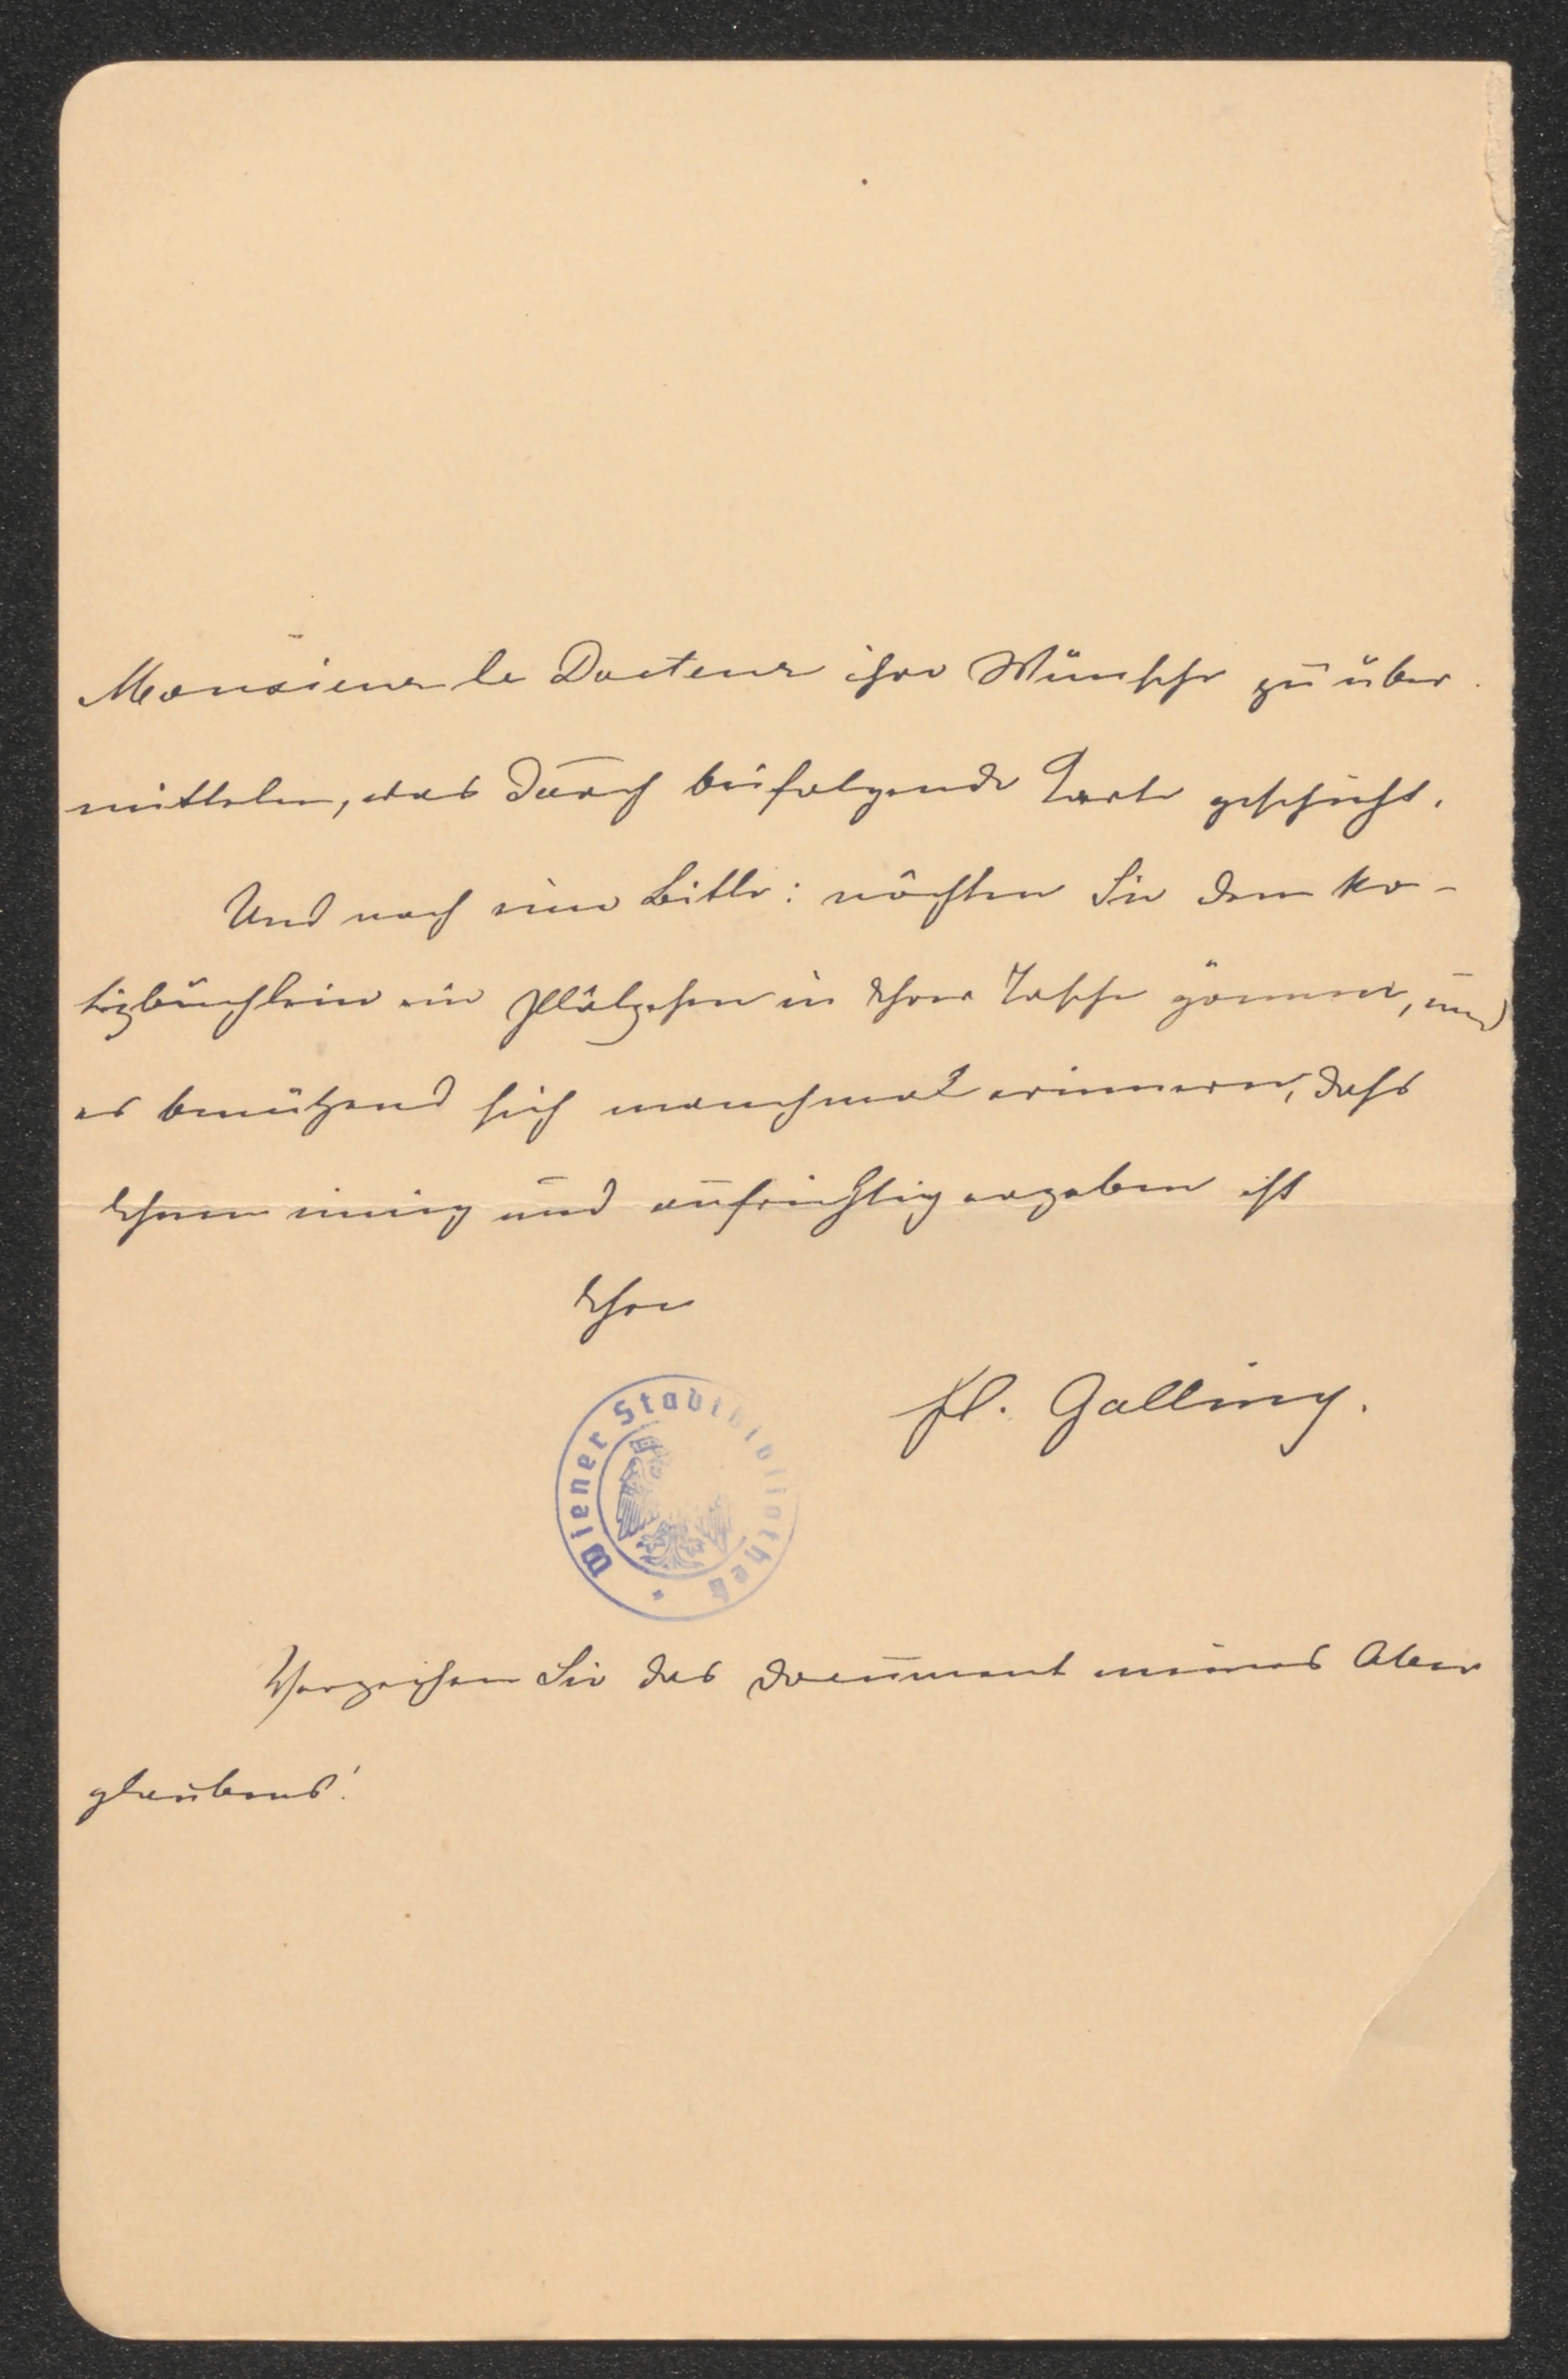 Monsieur le Docteur ihre Wünsche zu über
mitteln, was durch beifolgende Carte geschieht.
Und noch eine Bitte: möchten Sie dem No-
tizbüchlein ein Plätzchen in Ihrer Tasche gönnen, und
es benützend sich manchmal erinnern, dass
Ihnen innig und aufrichtig ergeben ist
Ihre
Fl. Galliny.
Wiener Stadtbibliothek
Verzeihen Sie das Document meines Aber
glaubens!